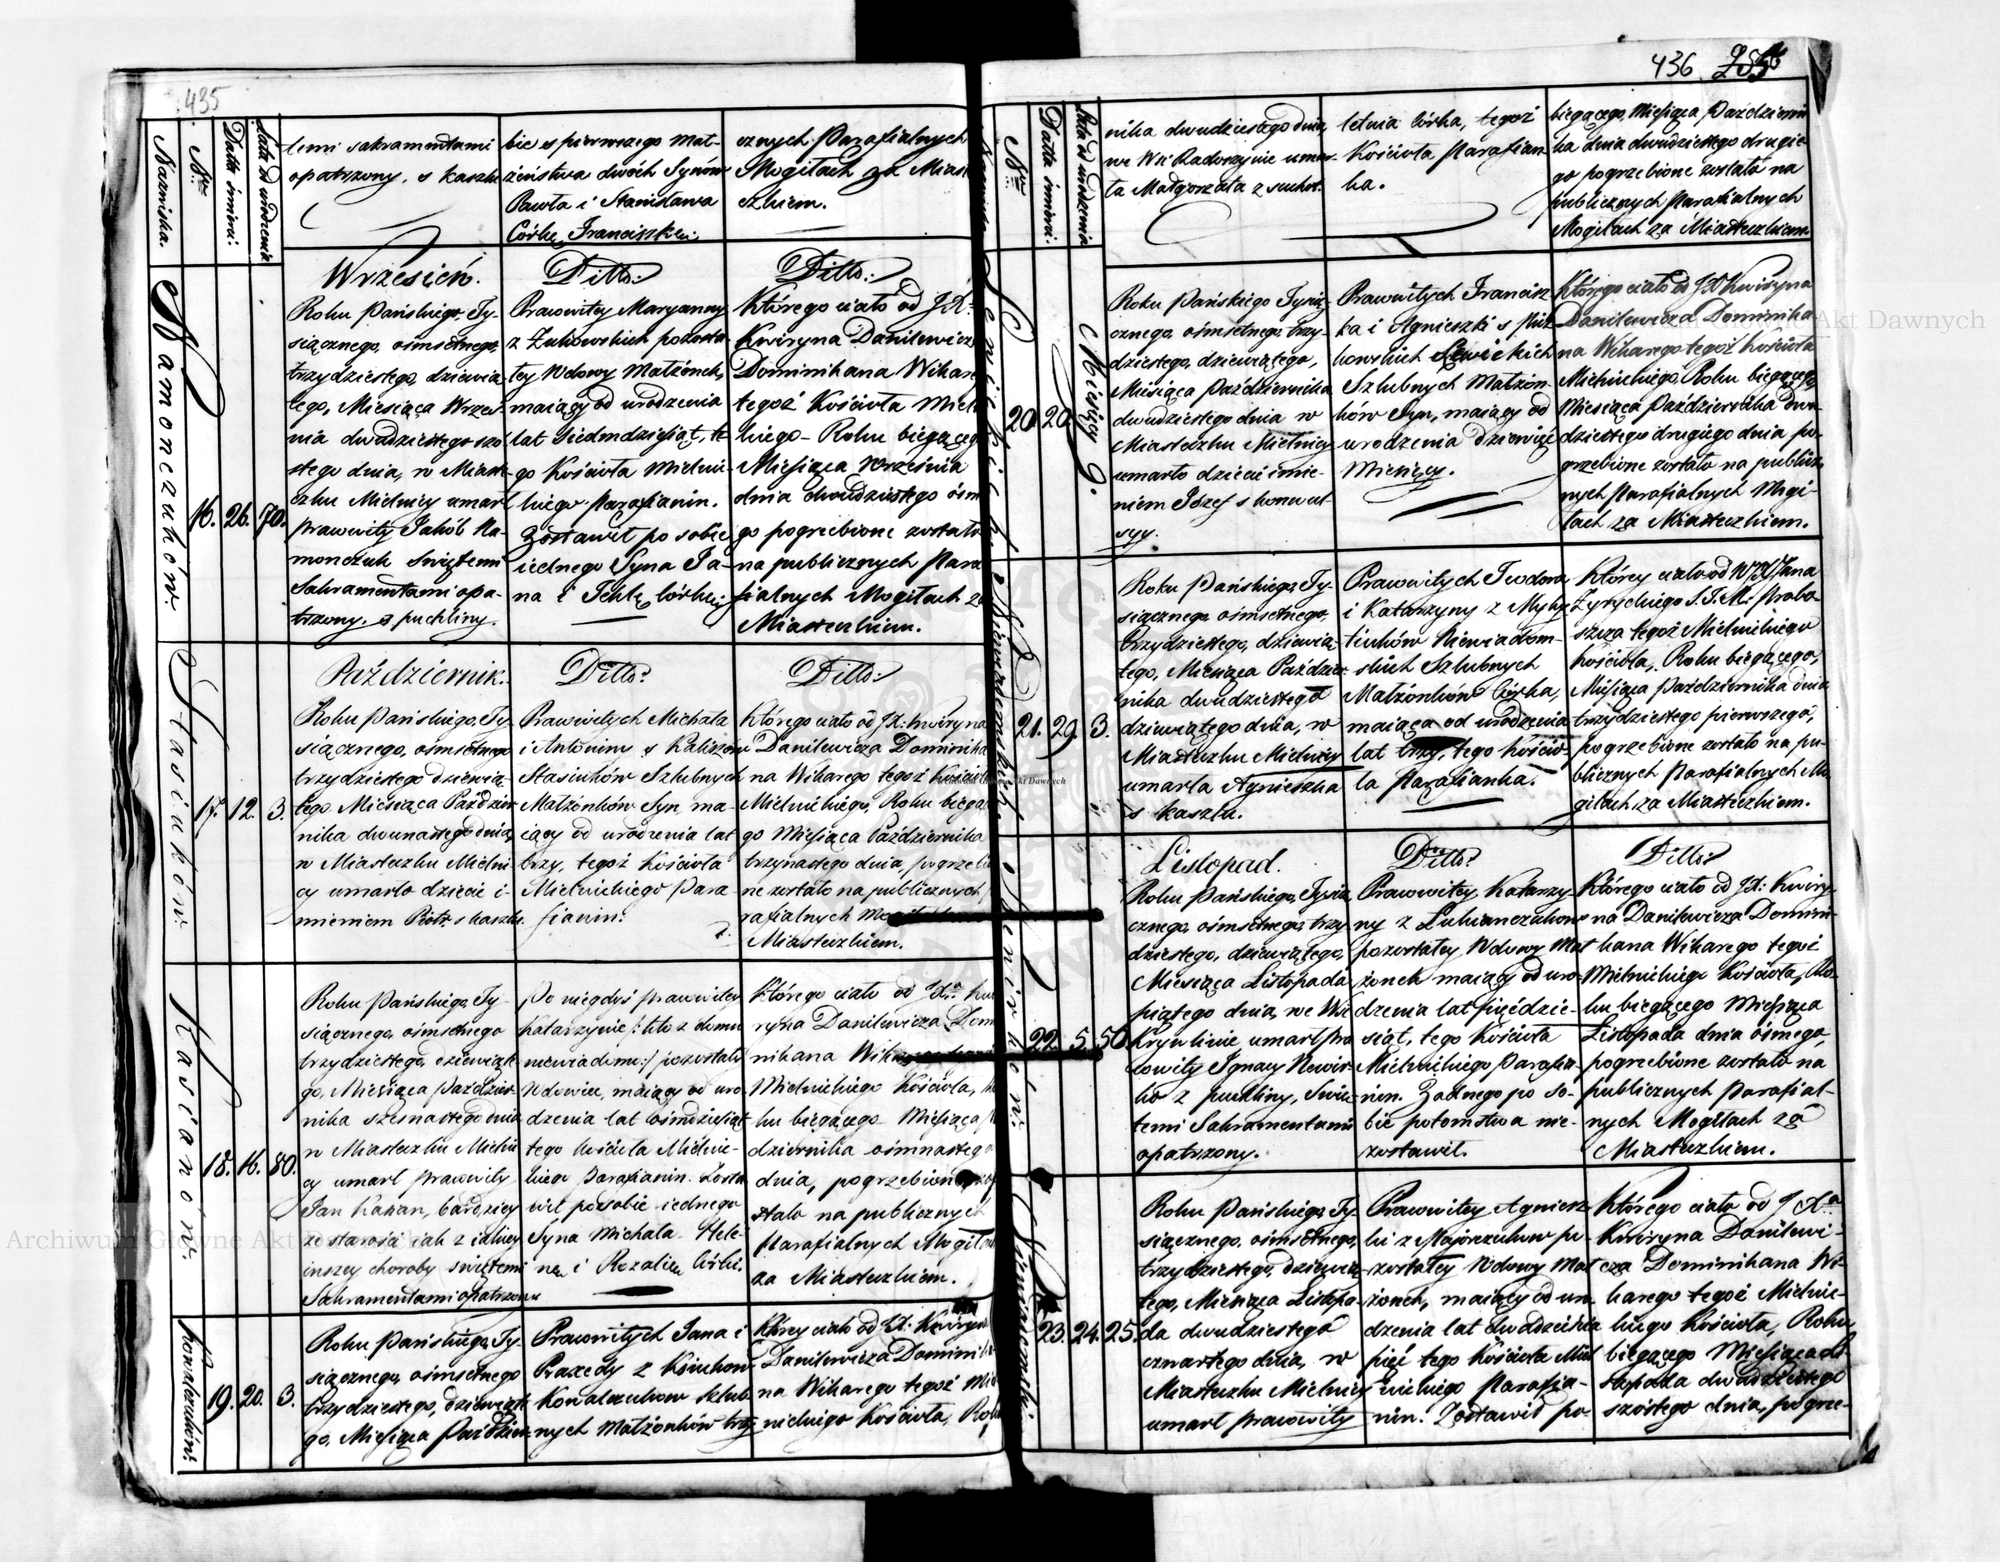 435
Nazwiska.
Nro
Data śmierci:
Lata od urodzenia
temi sakramentami
opatrzony, s kaszlu
bie s pierwszego mał-
żeństwa dwóch Synów
Pawła i Stanisława
Córkę Franciszkę.
cznych Parafialnych
Mogiłach za Miast
eczkiem.
Namonczuków.
16. 26. 70.
Wrzesień.
Roku Pańskiego, Ty-
siącznego, ośmsetnego,
trzydziestego, dziewią
tego, Miesiąca Wrześ
nia dwudziestego szó
stego dnia, w Miaste
czku Mielnicy umarł
prawowity Jakób Na-
monczuk Swiętemi
Sakramentami opa-
trzony. s puchliny.
Ditto:
Prawowitey Maryanny
z Żukowskich pozosta
łey Wdowy Małżonek,
maiący od urodzenia
lat Siedmdziesiąt, te
go Kościoła Mielni-
ckiego Parafianin.
Zostawił po sobie
iednego Syna Ja-
na i Teklę Córkę.
Ditto:
Którego ciało od JX.
Kwiryna Danilewicz
Dominikana Wikar
tegoż Kościoła Miel
ckiego - Roku bieżąceg
Miesiąca Września
dnia dwudziestego ósm
go pogrzebione zostało
na publicznych Para
fialnych Mogiłach za
Miasteczkiem.
Stasiuków.
17. 12. 3.
Październik.
Roku Pańskiego, Ty-
siącznego, ośmsetnego
trzydziestego dziewią-
tego Miesiąca Paździer
nika dwunastego dnia,
w Miasteczku Mielni-
cy umarło dziecie i-
mieniem Piotr. s kaszlu
Ditto:
Prawowitych Michała
i Antoniny s Kaliszów
Stasiuków Szlubnych
Małżonków Syn, ma-
iący od urodzenia lat
trzy, tegoż Kościoła
Mielnickiego Para-
fianin.
Ditto:
Którego ciało od JX: Kwiryna
Danilewicza Dominika
na Wikarego tegoż Kościoł
Mielnickiego, Roku bieżą
go Miesiąca Października
trzynastego dnia, pogrzebio
ne zostało na publicznych
rafialnych
Miasteczkiem.
Kacianów.
18. 16. 80.
Roku Pańskiego, Ty-
siącznego, ośmsetnego
trzydziestego, dziewiąte
go, Miesiąca Paździer
nika szesnastego dnia
w Miasteczku Mielni
cy umarł prawowity
Jan Kacian, bardziey
ze starości iak z iakiey
inszey choroby swiętemi
Sakramentami opatrzony
Po niegdyś prawowitey
Katarzynie /: lito z domu
niewiadomo:/ pozostały
Wdowiec, maiący od uro
dzenia lat ośmdziesiąt
tego Kościoła Mielnic-
kiego Parafianin. Zosta
wił po sobie iednego
Syna Michała. Hele-
nę i Rozalię Córki.
Którego ciało od JX. Kwi
ryna Danilewicza Dom
nikana
Mielnickiego Kościoła,
ku bieżącego Miesiąca
dziernika ośmnastego
dnia, pogrzebione
stało na publicznych
Parafialnych Mogiła
za Miasteczkiem.
Kowalczuków.
19. 20. 3.
Roku Pańskiego, Ty-
siącznego, ośmsetnego
trzydziestego, dziewiąte
go, Miesiąca Paździer-
Prawowitych Jana i
Praxedy z Księżków
Kowalczuków Szlub-
nych Małżonków trzy
Którey ciało od JX. Kwiryna
Danilewicza Dominika
na Wikarego tegoż Miel
nickiego Kościoła, Roku
436
Nro
Data śmierci:
Lata od urodzenia
nika dwudziestego dnia,
we Wsi Radoszynie umar-
ła Małgorzata z suchot.
letnia Córka, tegoż
Kościoła Parafian-
ka.
bieżącego, Miesiąca Październi
ka dnia dwudziestego drugie
go pogrzebione zostało na
publicznych Parafialnych
Mogiłach za Miasteczkiem
Lewickich.
20. 20. Miesięcy 9.
Roku Pańskiego Tysią-
cznego, ośmsetnego, trzy-
dziestego, dziewiątego,
Miesiąca Października
dwudziestego dnia w
Miasteczku Mielnicy
umarło dziecie imie-
niem Józef s konwul
syy.
Prawowitych Francisz-
ka i Agnieszki s
Lewickich
Szlubnych Małżon-
ków Syn, maiący od
urodzenia dziewięć
Miesięcy.
Którego ciało od JX Kwiryna
Danilewicza Dominika
na Wikarego tegoż Kościoła
Mielnickiego, Roku bieżącego
Miesiąca Października dwu
dziestego drugiego dnia po-
grzebione zostało na publicz
nych Parafialnych Mogi-
łach za Miasteczkiem.
Niewiadomskich
21. 29. 3.
Roku Pańskiego, Ty-
siącznego, ośmsetnego,
trzydziestego, dziewią-
tego, Miesiąca Paździer-
nika dwudziestego
dziewiątego dnia, w
Miasteczku Mielnicy
umarła Agnieszka
s kaszlu.
Prawowitych Teodora
i Katarzyny z
Niewiadom-
skich Szlubnych
Małżonków Córka,
maiąca od urodzenia
lat trzy, tego Kościo-
ła Parafianka.
Którey ciało od WJX Jana
Zyryckiego S. T. M. Probo-
szcza tegoż Mielnickiego
Kościoła, Roku bieżącego,
Miesiąca Października dnia
trzydziestego pierwszego,
pogrzebione zostało na pu-
blicznych Parafialnych Mo-
giłach za Miasteczkiem.
22. 5. 50.
Listopad.
Roku Pańskiego, Tysią
cznego, ośmsetnego, trzy
dziestego, dziewiątego,
Miesiąca Listopada
piątego dnia, we Wsi
Krywlinie, umarł Pra
wowity Ignacy Newir-
ko z puchliny, Swię-
temi Sakramentami
opatrzony.
Ditto:
Prawowitey Katarzy-
ny z Łukianczuków
pozostałey Wdowy Mał
żonek maiący od uro-
dzenia lat pięćdzie-
siąt, tego Kościoła
Mielnickiego Parafia-
nin. Żadnego po so-
bie potomstwa nie-
zostawił.
Ditto:
Którego ciało od JX: Kwiry-
na Danilewicza Domini-
kana Wikarego tegoż
Mielnickiego Kościoła, Ro-
ku bieżącego Miesiąca
Listopada dnia ósmego,
pogrzebione zostało na
publicznych Parafial-
nych Mogiłach za
Miasteczkiem.
23. 24. 25.
Roku Pańskiego, Ty-
siącznego, ośmsetnego,
trzydziestego, dziewią-
tego, Miesiąca Listopa-
da dwudziestego
czwartego dnia, w
Miasteczku Mielnicy
umarł prawowity
Prawowitey Agniesz-
ki z Majorczuków po-
zostałey Wdowy Mał
żonek, maiący od uro-
dzenia lat dwadzieścia
pięć tego Kościoła Miel
nickiego Parafia-
nin. Zostawił po-
Którego ciało od JX.
Kwiryna Danilewi-
cza Dominikana Wi-
karego tegoż Mielnic-
kiego Kościoła, Roku
bieżącego Miesiąca Li-
stopada dwudziestego
szóstego dnia, pogrze-
Archiwum Główne Akt Dawnych